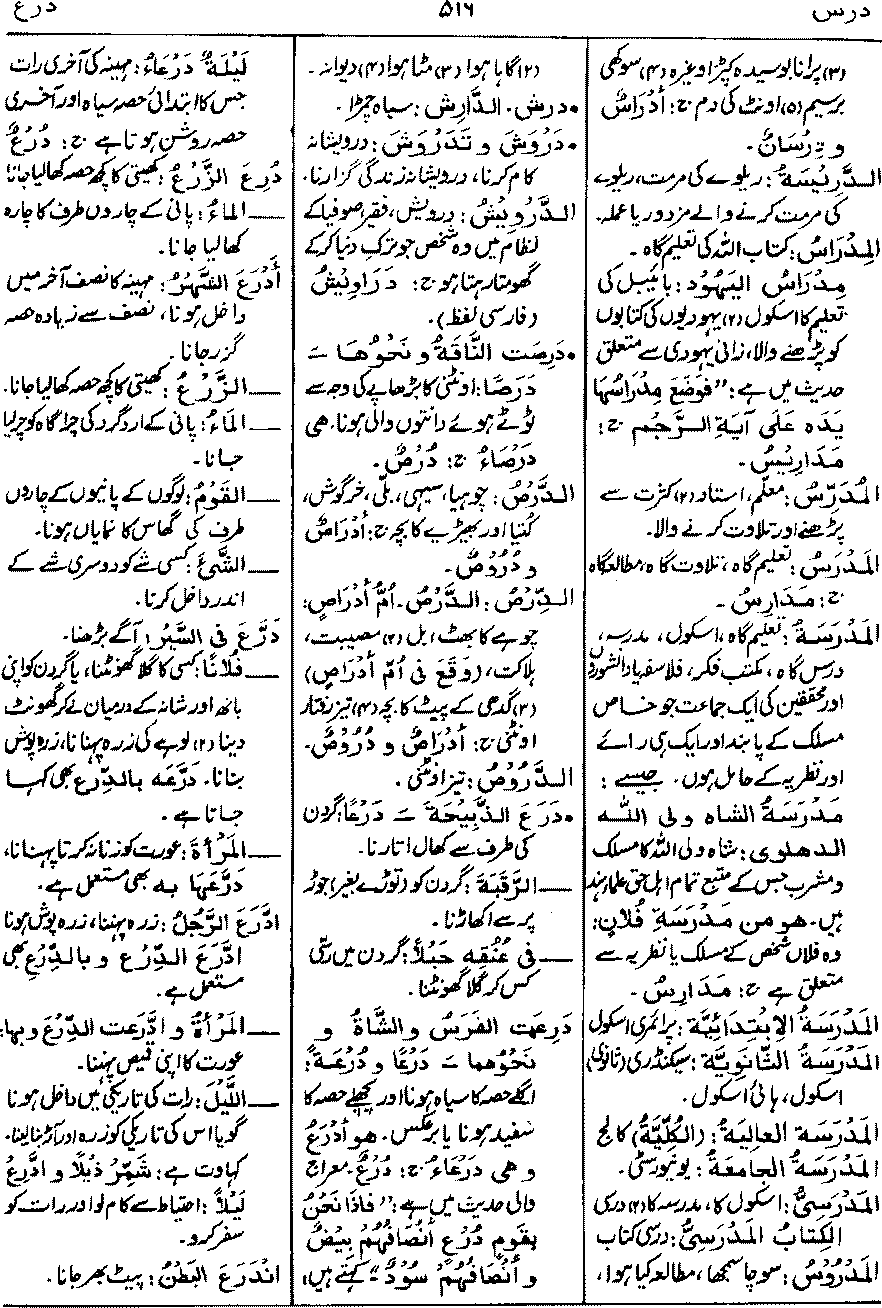 درس ۵۱۶ درع
(۳) پرانا بوسیدہ کپڑا وغیرہ (۴) سوکھی
برسیم (۵) اونٹ کی دم ج: أَدْرَاسٌ
و دِرْسَانٌ۔
الدَّرِيْسَةُ: ریلوے کی مرمت، ریلوے
کی مرمت کرنے والے مزدور یا عملہ۔
المِدْرَاسُ: کتاب اللہ کی تعلیم گاہ۔
مِدْرَاسُ اليَهُود: بائیبل کی
تعلیم کا اسکول (۲) یہودیوں کی کتابوں
کو پڑھنے والا، زانی یہودی سے متعلق
حدیث میں ہے: "فَوَضَعَ مِدْرَاسُهَا
يَدَه عَلَى آيَةِ الرَّجْمِ ج:
مَدَارِيْسُ۔
المُدَرِّسُ: معلّم، استاد (۲) کثرت سے
پڑھنے اور تلاوت کرنے والا۔
المَدْرَسُ: تعلیم گاہ، تلاوت گاہ، مطالعہ گاہ
ج: مَدَارِسُ۔
المَدْرَسَةُ: تعلیم گاہ، اسکول، مدرسہ،
درس گاہ، مکتب فکر، فلاسفہ یا دانشوروں
اور محققین کی ایک جماعت جو خاص
مسلک کے پابند اور ایک ہی رائے
اور نظریہ کے حامل ہوں۔ جیسے:
مَدْرَسَةُ الشاه ولى الله
الدهلوى: شاہ ولی اللہ کا مسلک
و مشرب جس کے متبع تمام اہل حق علماء ہند
ہیں۔ هو من مَدْرَسَةِ فُلَانٍ:
وہ فلاں شخص کے مسلک یا نظریہ سے
متعلق ہے ج: مَدَارِسُ۔
المَدْرَسَةُ الاِبْتِدَائِيَّة: پرائمری اسکول
المَدْرَسَةُ الثَّانَوِيَّة: سیکنڈری (ثانوی)
اسکول، ہائی اسکول۔
المَدْرَسَة العالِيَة: (الكُلِّيَّةُ) کالج
المَدْرَسَةُ الجامعَة: یونیورسٹی۔
المَدْرَسِيُّ: اسکول کا، مدرسہ کا (۲) درسی
الكِتَابُ المَدْرَسِيُّ: درسی کتاب
المَدْرُوْسُ: سوچا سمجھا، مطالعہ کیا ہوا،
(۲) گاہا ہوا (۳) مٹا ہوا (۴) دیوانہ۔
• درش۔ الدَّارِش: سیاہ چمڑا۔
• دَرْوَشَ و تَدَرْوَشَ: درویشانہ
کام کرنا، درویشانہ زندگی گزارنا۔
الدَّرْوِيْشُ: درویش، فقیر، صوفیا کے
نظام میں وہ شخص جو ترک دنیا کر کے
گھومتا رہتا ہو ج: دَرَاوِيْشُ
(فارسی لفظ)۔
• دَرِصَت النَّاقَةُ و نَحْوُهَا ـَ
دَرَصًا: اونٹنی کا بڑھاپے کی وجہ سے
ٹوٹے ہوئے دانتوں والی ہونا۔ هى
دَرْصَاءُ ج: دُرْصٌ۔
الدَّرْصُ: چوہیا، سیہی، بلّی، خرگوش،
کتیا اور بھیڑیے کا بچہ ج: أَدْرَاصٌ
و دُرُوْصٌ۔
الدِّرْصُ: الدَّرْصُ۔ أُمّ أَدْرَاصٍ:
چوہے کا بھٹ، بل (۲) مصیبت،
ہلاکت، (وَقَعَ فى أُمّ أَدْرَاصٍ)
(۳) گدھی کے پیٹ کا بچہ (۴) تیز رفتار
اونٹنی ج: أَدْرَاصٌ و دُرُوْصٌ۔
الدَّرُوْصُ: تیز اونٹنی۔
• دَرَعَ الذَّبِيْحَةَ ـَ دَرْعًا: گردن
کی طرف سے کھال اتارنا۔
—الرَّقَبَةَ: گردن کو (توڑے بغیر) جوڑ
پر سے اکھاڑنا۔
—فى عُنُقِه حَبْلًا: گردن میں رسّی
کس کر گلا گھونٹنا۔
دَرِعَت الفَرَسُ والشَّاةُ و
نَحْوُهما ـَ دَرَعًا و دُرْعَةً:
اگلے حصہ کا سیاہ ہونا اور پچھلے حصہ کا
سفید ہونا یا برعکس۔ هو أَدْرَعُ
و هى دَرْعَاءُ ج: دُرْعٌ۔ معراج
والی حدیث میں ہے: "فَإِذَا نَحْنُ
بِقَومٍ دُرْعٍ أَنْصَافُهُم بِيْضٌ
و أَنْصَافُهُم سُوْدٌ" کہتے ہیں:
لَيْلَةٌ دَرْعَاءُ: مہینہ کی آخری رات
جس کا ابتدائی حصہ سیاہ اور آخری
حصہ روشن ہوتا ہے ج: دُرْعٌ
دُرِعَ الزَّرْعُ: کھیتی کا کچھ حصہ کھا لیا جانا
—المَاءُ: پانی کے چاروں طرف کا چارہ
کھا لیا جانا۔
أَدْرَعَ الشَّهْرُ: مہینہ کا نصف آخر میں
داخل ہونا، نصف سے زیادہ حصہ
گزر جانا۔
—الزَّرْعُ: کھیتی کا کچھ حصہ کھا لیا جانا۔
—المَاءُ: پانی کے اردگرد کی چراگاہ کو چر لیا
جانا۔
—القَوْمُ: لوگوں کے پانیوں کے چاروں
طرف کی گھاس کا نمایاں ہونا۔
—الشَّيْءَ: کسی شے کو دوسری شے کے
اندر داخل کرنا۔
دَرَّعَ فى السَّيْرِ: آگے بڑھنا۔
—فُلَانًا: کسی کا گلا گھونٹنا، یا گردن کو اپنی
ہاتھ اور شانہ کے درمیان لے کر گھونٹ
دینا (۲) لوہے کی زرہ پہنانا، زرہ پوش
بنانا۔ دَرَّعَه بالدِّرْعِ بھی کہا
جاتا ہے۔
—المَرْأَةَ: عورت کو زنانہ کرتا پہنانا،
دَرَّعَها به بھی مستعمل ہے۔
ادَّرَعَ الرَّجُلُ: زرہ پہننا، زرہ پوش ہونا
ادَّرَعَ الدِّرْعَ و بالدِّرْعِ بھی
مستعمل ہے۔
—المَرْأَةُ و ادَّرَعت الدِّرْعَ و بها:
عورت کا اپنی قمیص پہننا۔
—اللَّيْلَ: رات کی تاریکی میں داخل ہونا
گویا اس کی تاریکی کو زرہ اور آڑ بنا لینا۔
کہاوت ہے: شَمِّرْ ذَيْلًا و ادَّرِعْ
لَيْلًا: احتیاط سے کام لو اور رات کو
سفر کرو۔
انْدَرَعَ البَطْنُ: پیٹ بھر جانا۔